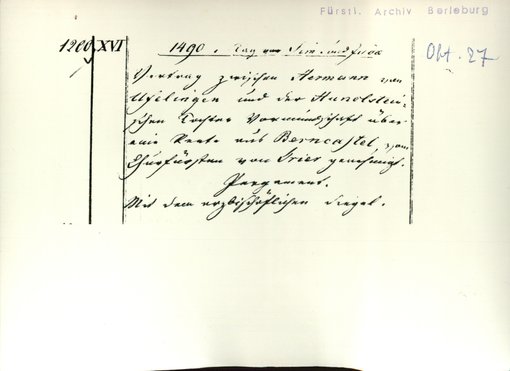 Fürstl. Archiv Berleburg
1200 XVI
1490. Tag vor Sim. und Judä
Okt. 27
Vertrag zwischen Hermann von
und der Hunolstein-
schen Tochter Vormundschaft über
eine Rente aus Berncastel, vom
Churfürsten von Trier genehmigt.
Pergament.
Mit dem erzbischöflichen Siegel.